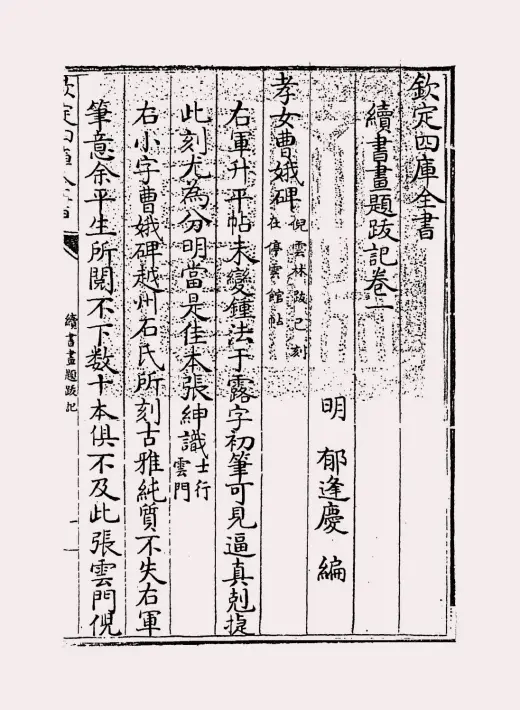 欽定四庫全書
續書畫題跋記卷一
明 郁逢慶 編
孝女曹娥碑 倪雲林跋已刻
在停雲館帖
右軍升平帖未變鍾法于露字初筆可見逼真剋捷
此刻尤為分明當是佳本張紳識 士行
雲門
右小字曹娥碑越州石氏所刻古雅純質不失右軍
筆意余平生所閱不下数十本俱不及此張雲門倪
欽定四庫全書
續書畫題跋記
一